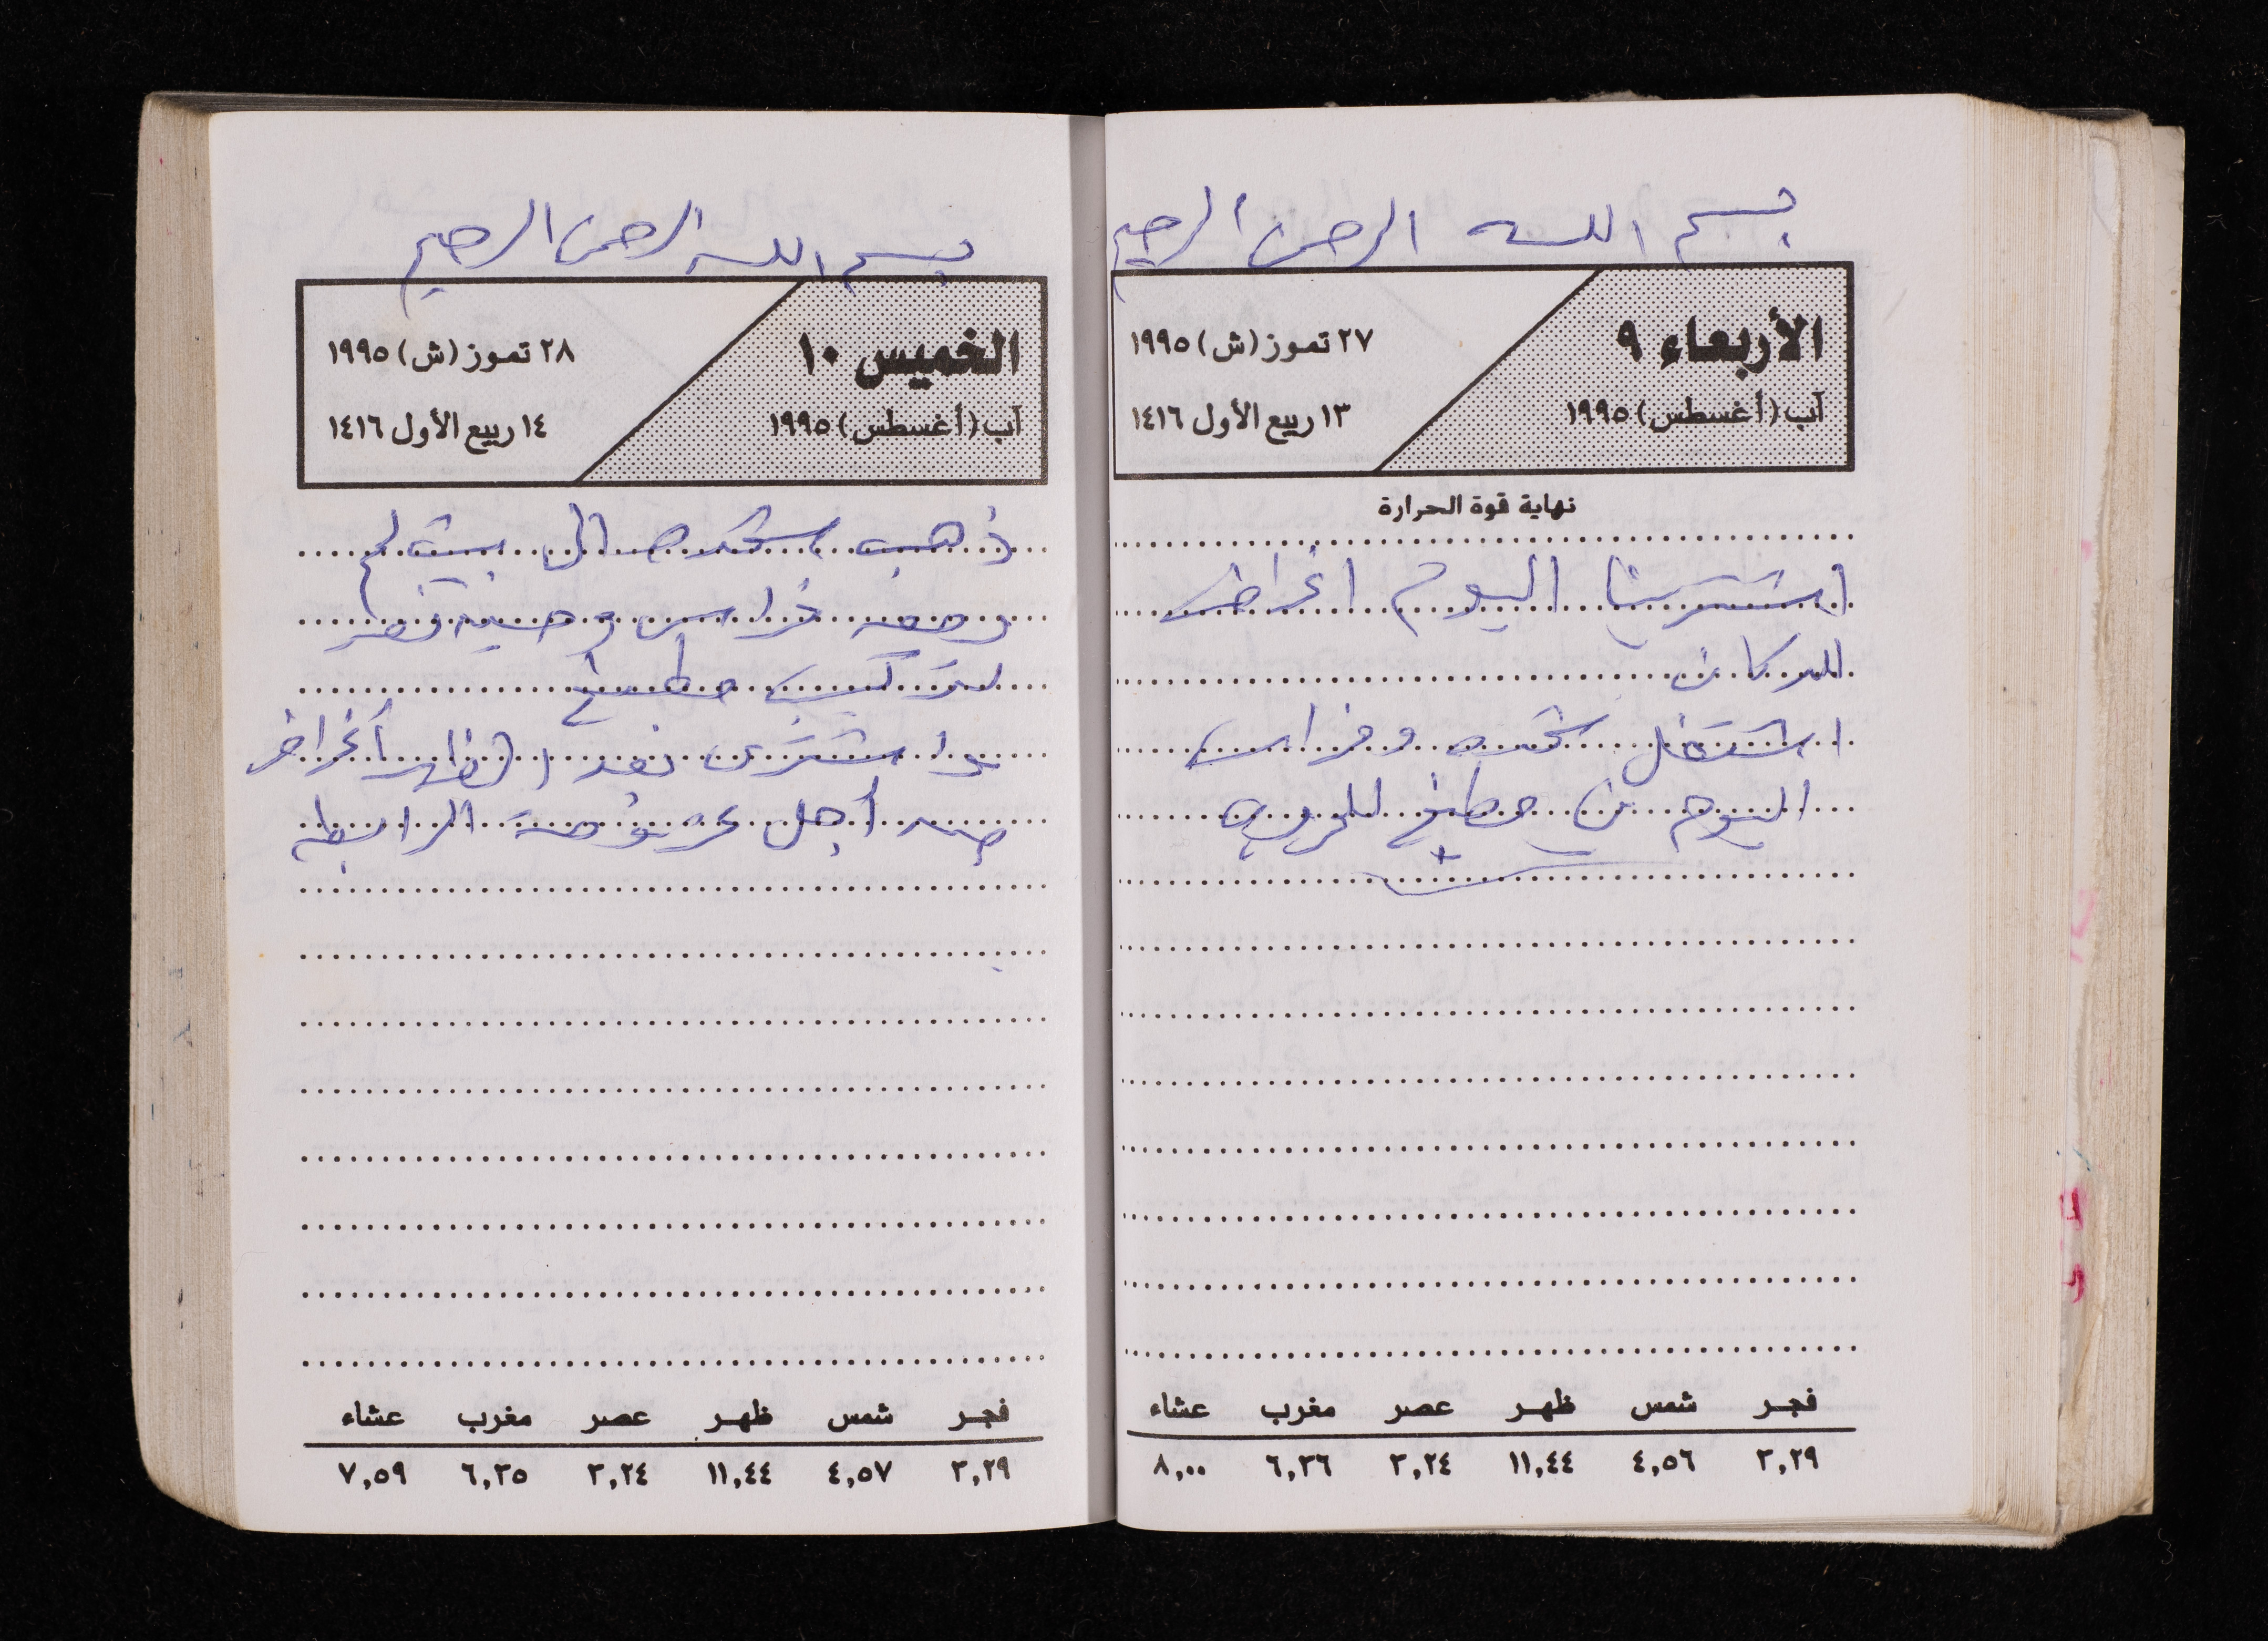 بسم الله الرحمن الرحيم
الأربعاء ٩
آب (أغسطس) ١٩٩٥
٢٧ تموز (ش) ١٩٩٥
١٣ ربيع الأول ١٤١٦
نهاية قوة الحرارة
اشترينا اليوم اغراض
للدكان
اشتغل شحده وفراس
اليوم في مطبخ
فجر شمس ظهر عصر مغرب عشاء
٣,٢٩ ٤,٥٦ ١١,٤٤ ٣,٢٤ ٦,٣٦ ٨,٠٠
بسم الله الرحمن الرحيم
الخميس ١٠
آب (أغسطس) ١٩٩٥
٢٨ تموز (ش) ١٩٩٥
١٤ ربيع الأول ١٤١٦
ذهب شحده الى بيت لحم
ومعه فراس
لتركيب مطبخ
واشترى بعد الظهر أغراض
من أجل الرابطه
فجر شمس ظهر عصر مغرب عشاء
٣,٢٩ ٤,٥٧ ١١,٤٤ ٣,٢٤ ٦,٣٥ ٧,٥٩